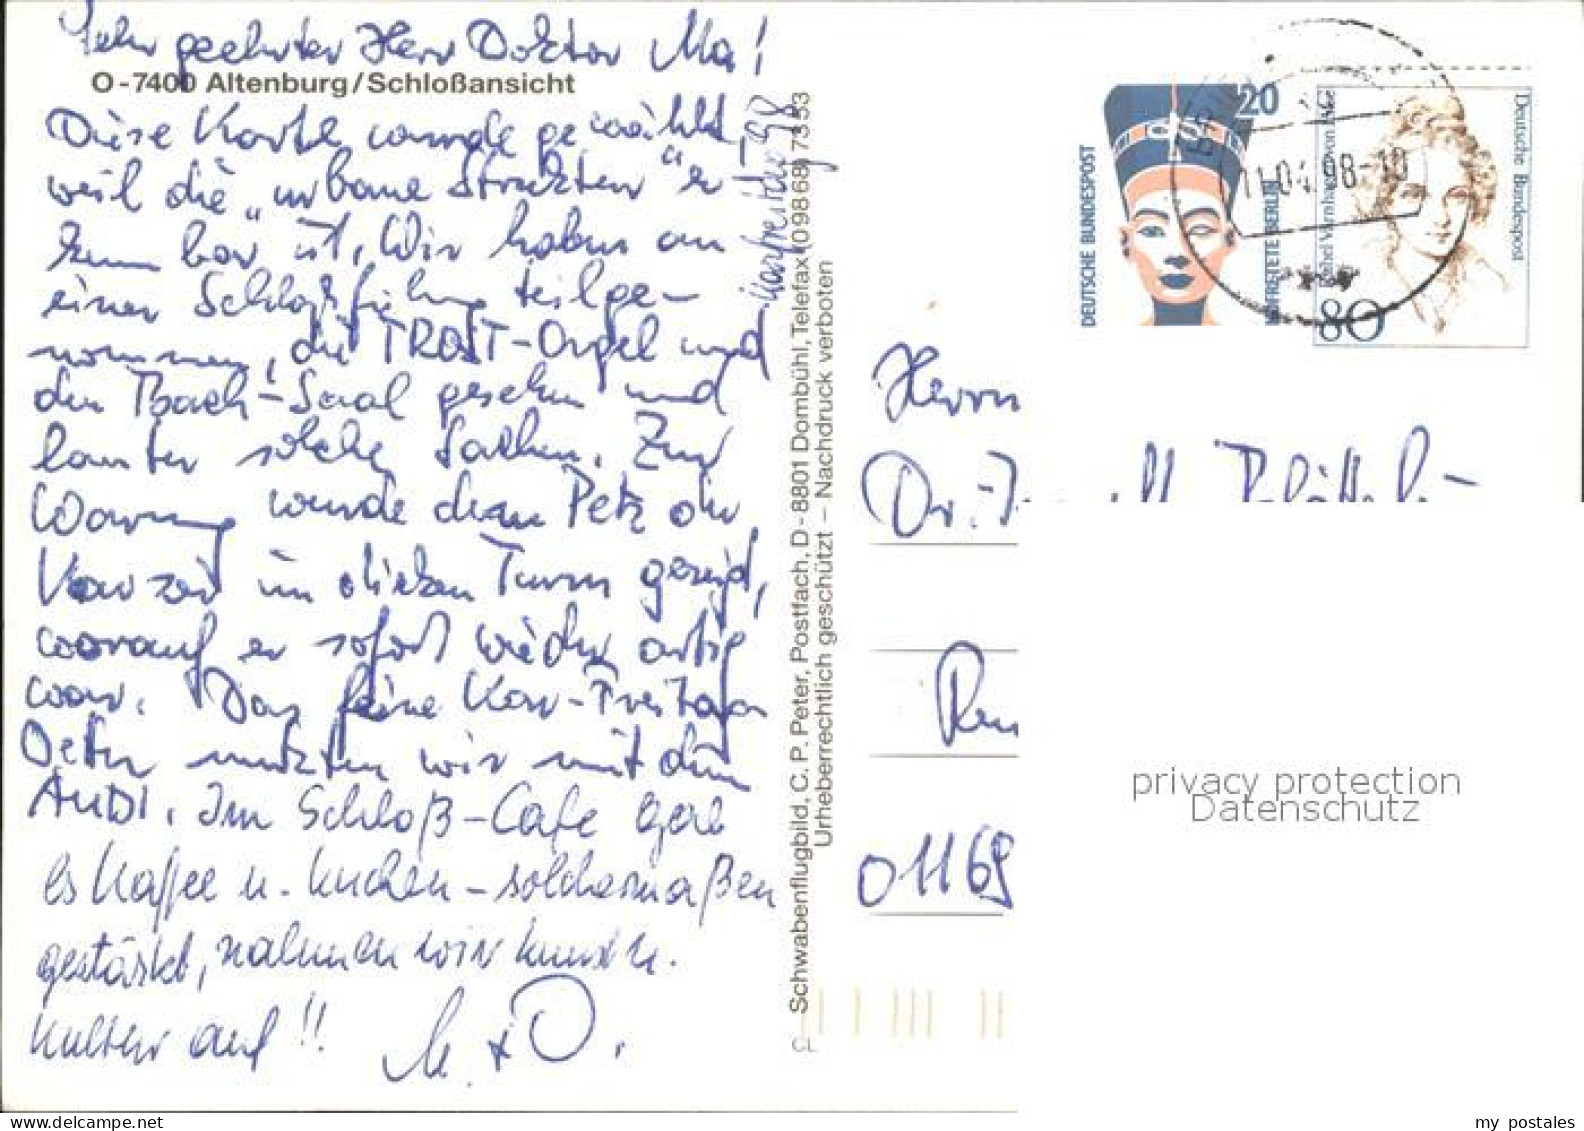 Sehr geehrter Herr Doktor Ma!
O-7400 Altenburg/Schloßansicht
Diese Karte wurde gewählt,
weil die "urbane Struktur" er-
kennbar ist. Wir haben an
einer Schloßführung teilge-
nommen, die TROST-Orgel und
den Bach-Saal gesehen und
lauter solche Sachen. Zur
Warnung wurde dem Petz der
im dicken Turm gezeigt,
worauf er sofort wieder artig
war. Das feine Kar-Freitags
nutzten wir mit dem
AUDI. Im Schloß-Cafe gab
es Kaffee u. Kuchen - solchermaßen
gestärkt, nahmen wir Kunst u.
Kultur auf!!
Karfreitag 98
Schwabenflugbild, C. P. Peter, Postfach, D-8801 Dombühl, Telefax (09868) 7353
Urheberrechtlich geschützt – Nachdruck verboten
CL
DEUTSCHE BUNDESPOST
20
NOFRETETE BERLIN
Deutsche Bundespost
Rahel Varnhagen von Ense
80
11.04.98-10
Herrn
Dr.
01169
privacy protection
Datenschutz
my postales